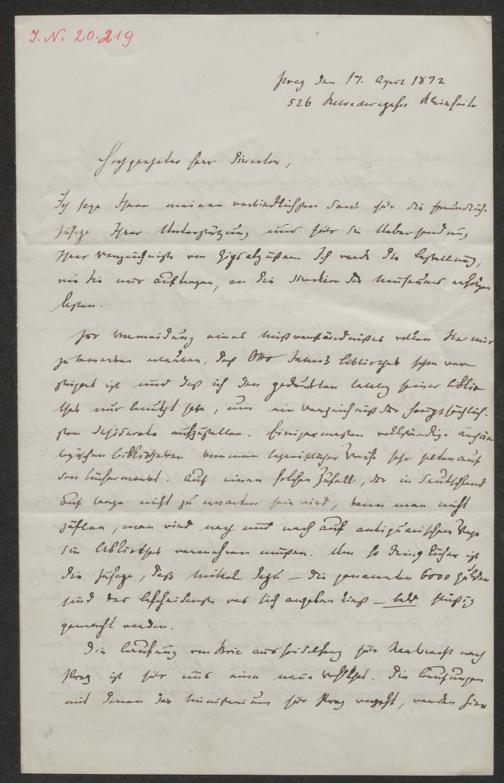 I. N. 20.219
Prag den 17. April 1872
526 Kleinseite
Hochgeehrter Herr Director,
Ich sage Ihnen meinen verbindlichsten Dank für die freundlich
Ihrer Unterstützung und für die Uebersendung
Ihres Verzeichnisses von Gipsabgüssen. Ich werde die Bestellung,
wie Sie mir auftragen, an die Direction des Museums
lassen.
Zur Vermeidung eines Mißverständnisses wollen Sie mir
zu bemerken erlauben, daß Otto Jahns Bibliothek schon ver
steigert ist und daß ich den gedruckten Catalog seiner Biblio
thek nur benutzt habe, um ein Verzeichniß der hauptsächlich
sten Desiderate aufzustellen. Einigermaßen vollständige archäo
logische Bibliotheken kommen Weise sehr selten auf
den Büchermarkt. Auf einen solchen Zufall, der in Deutschland
auf lange nicht zu erwarten sein wird, kann man nicht
zählen, man wird nach und nach auf antiquarischem Wege
die Bibliothek vermehren müssen. Um so dringlicher ist
die Frage, daß Mittel dazu – die genannten 6000 Gulden
sind das Bescheidenste was sich angeben ließ – bald flüssig
gemacht werden.
Die Berufung von aus Heidelberg für nach
Prag ist für uns eine neue Die Berufungen
mit denen das Ministerium für Prag vorgeht, werden hier